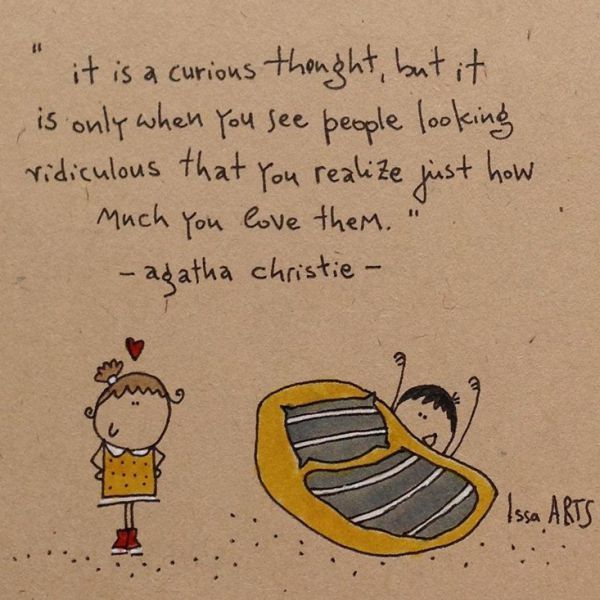 " it is a curious thought, but it
is only when you see people looking
ridiculous that you realize just how
much you love them. "
- agatha christie -
Issa ARTS